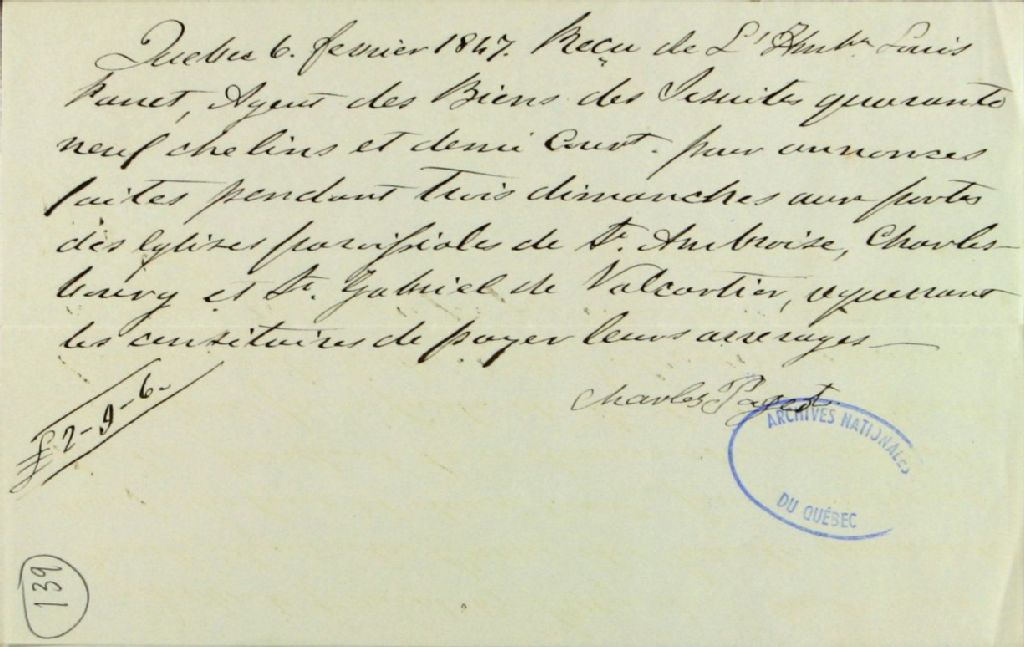 Quebec 6. fevrier 1847. Reçu de L'Honble Louis
Panet, Agent des Biens des Jesuites quarante
neuf chelins et demi Court. pour annonces
faites pendant trois dimanches aux portes
des Eglises paroissiales de St. Ambroise, Charles-
bourg et St. Gabriel de Valcartier, requerrant
les censitaires de payer leurs arrerages—
Charles
£2-9-6.
ARCHIVES NATIONALES
DU QUÉBEC
139